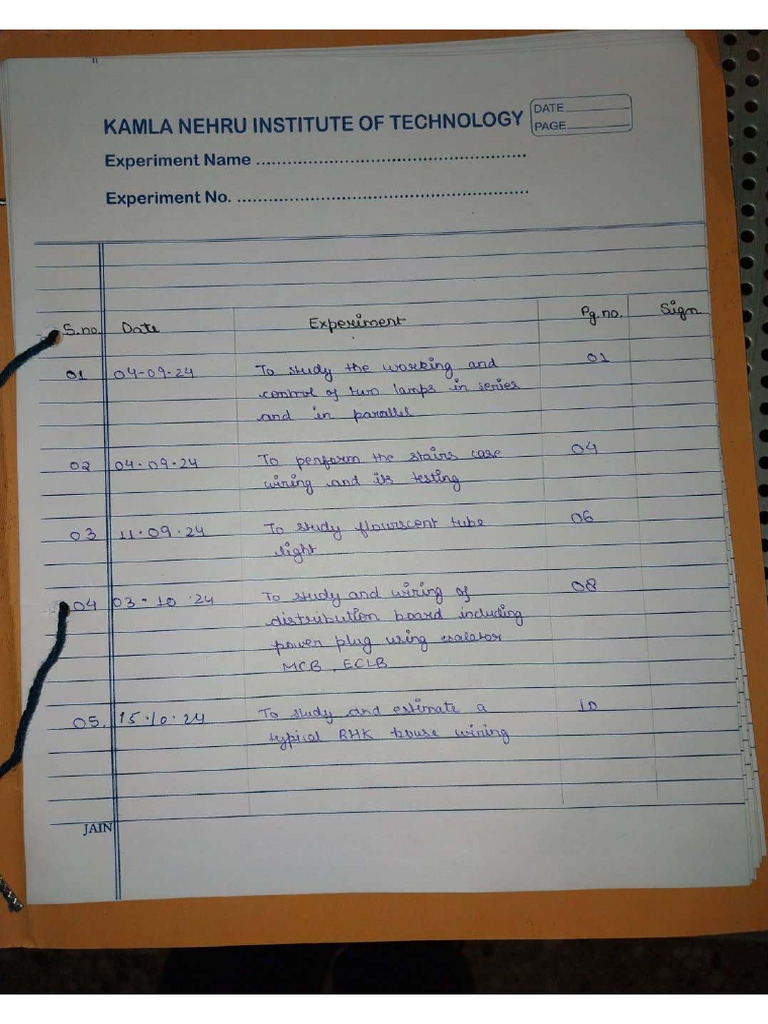 KAMLA NEHRU INSTITUTE OF TECHNOLOGY
DATE
PAGE
Experiment Name
Experiment No.
S.no. Date Experiment Pg.no. Sign
01 04-09-24 To study the working and 01
control of two lamps in series
and in parallel
02 04.09.24 To perform the stairs case 04
wiring and its testing
03 11.09.24 To study flourscent tube 06
light
04 03-10.24 To study and wiring of 08
distribution board including
power plug using
MCB, ECLB
05. 15.10.24 To study and estimate a 10
typical BHK house wiring
JAIN